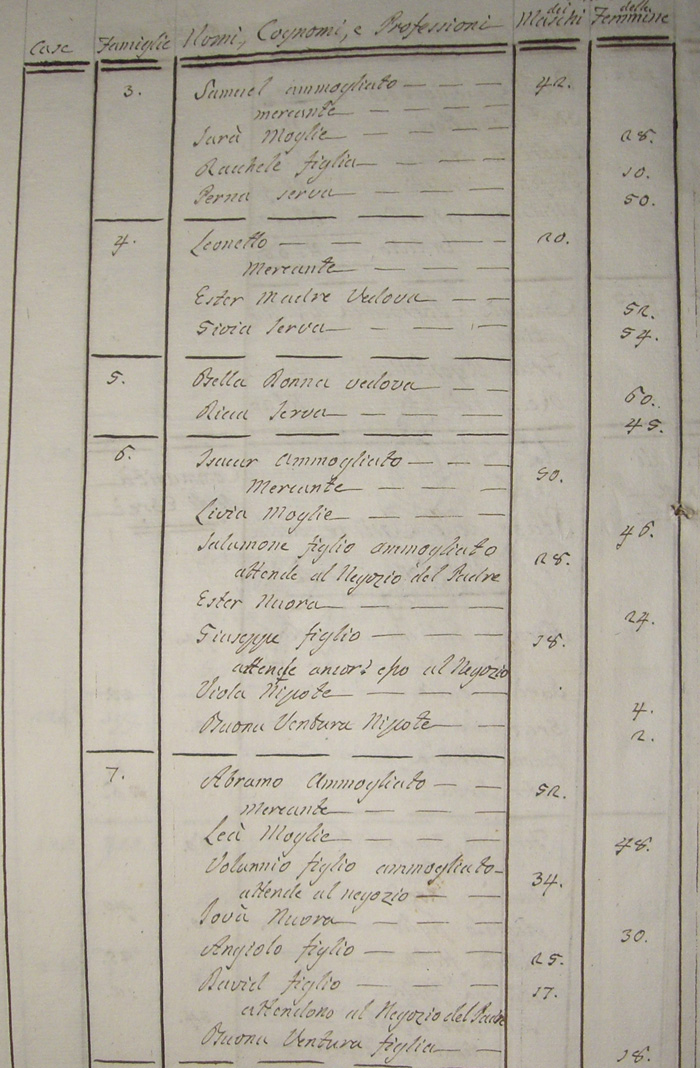 Case Famiglie Nomi, Cognomi, e Professioni dei Maschi delle Femmine
3. Samuel ammogliato 42.
mercante
Sarà Moglie 28.
Rachele figlia 10.
Perna serva 50.
4. Leonetto 20.
Mercante
Ester Madre Vedova 52.
Livia Serva 54.
5. Bella Donna vedova 60.
Rica Serva 45.
6. Isacar Ammogliato 50.
Mercante
Livia Moglie 46.
Salamone figlio ammogliato 28.
attende al Negozio del Padre
Ester Nuora 24.
Giuseppe figlio 18.
attende ancor esso al Negozio
Viola Nipote 4.
Buona Ventura Nipote 2.
7. Abramo Ammogliato 52.
mercante
Leà Moglie 48.
Volunnio figlio ammogliato
attende al negozio 34.
Nuora 30.
Angiolo figlio 25.
David figlio 17.
attendono al Negozio del Padre
Buona Ventura figlia 18.